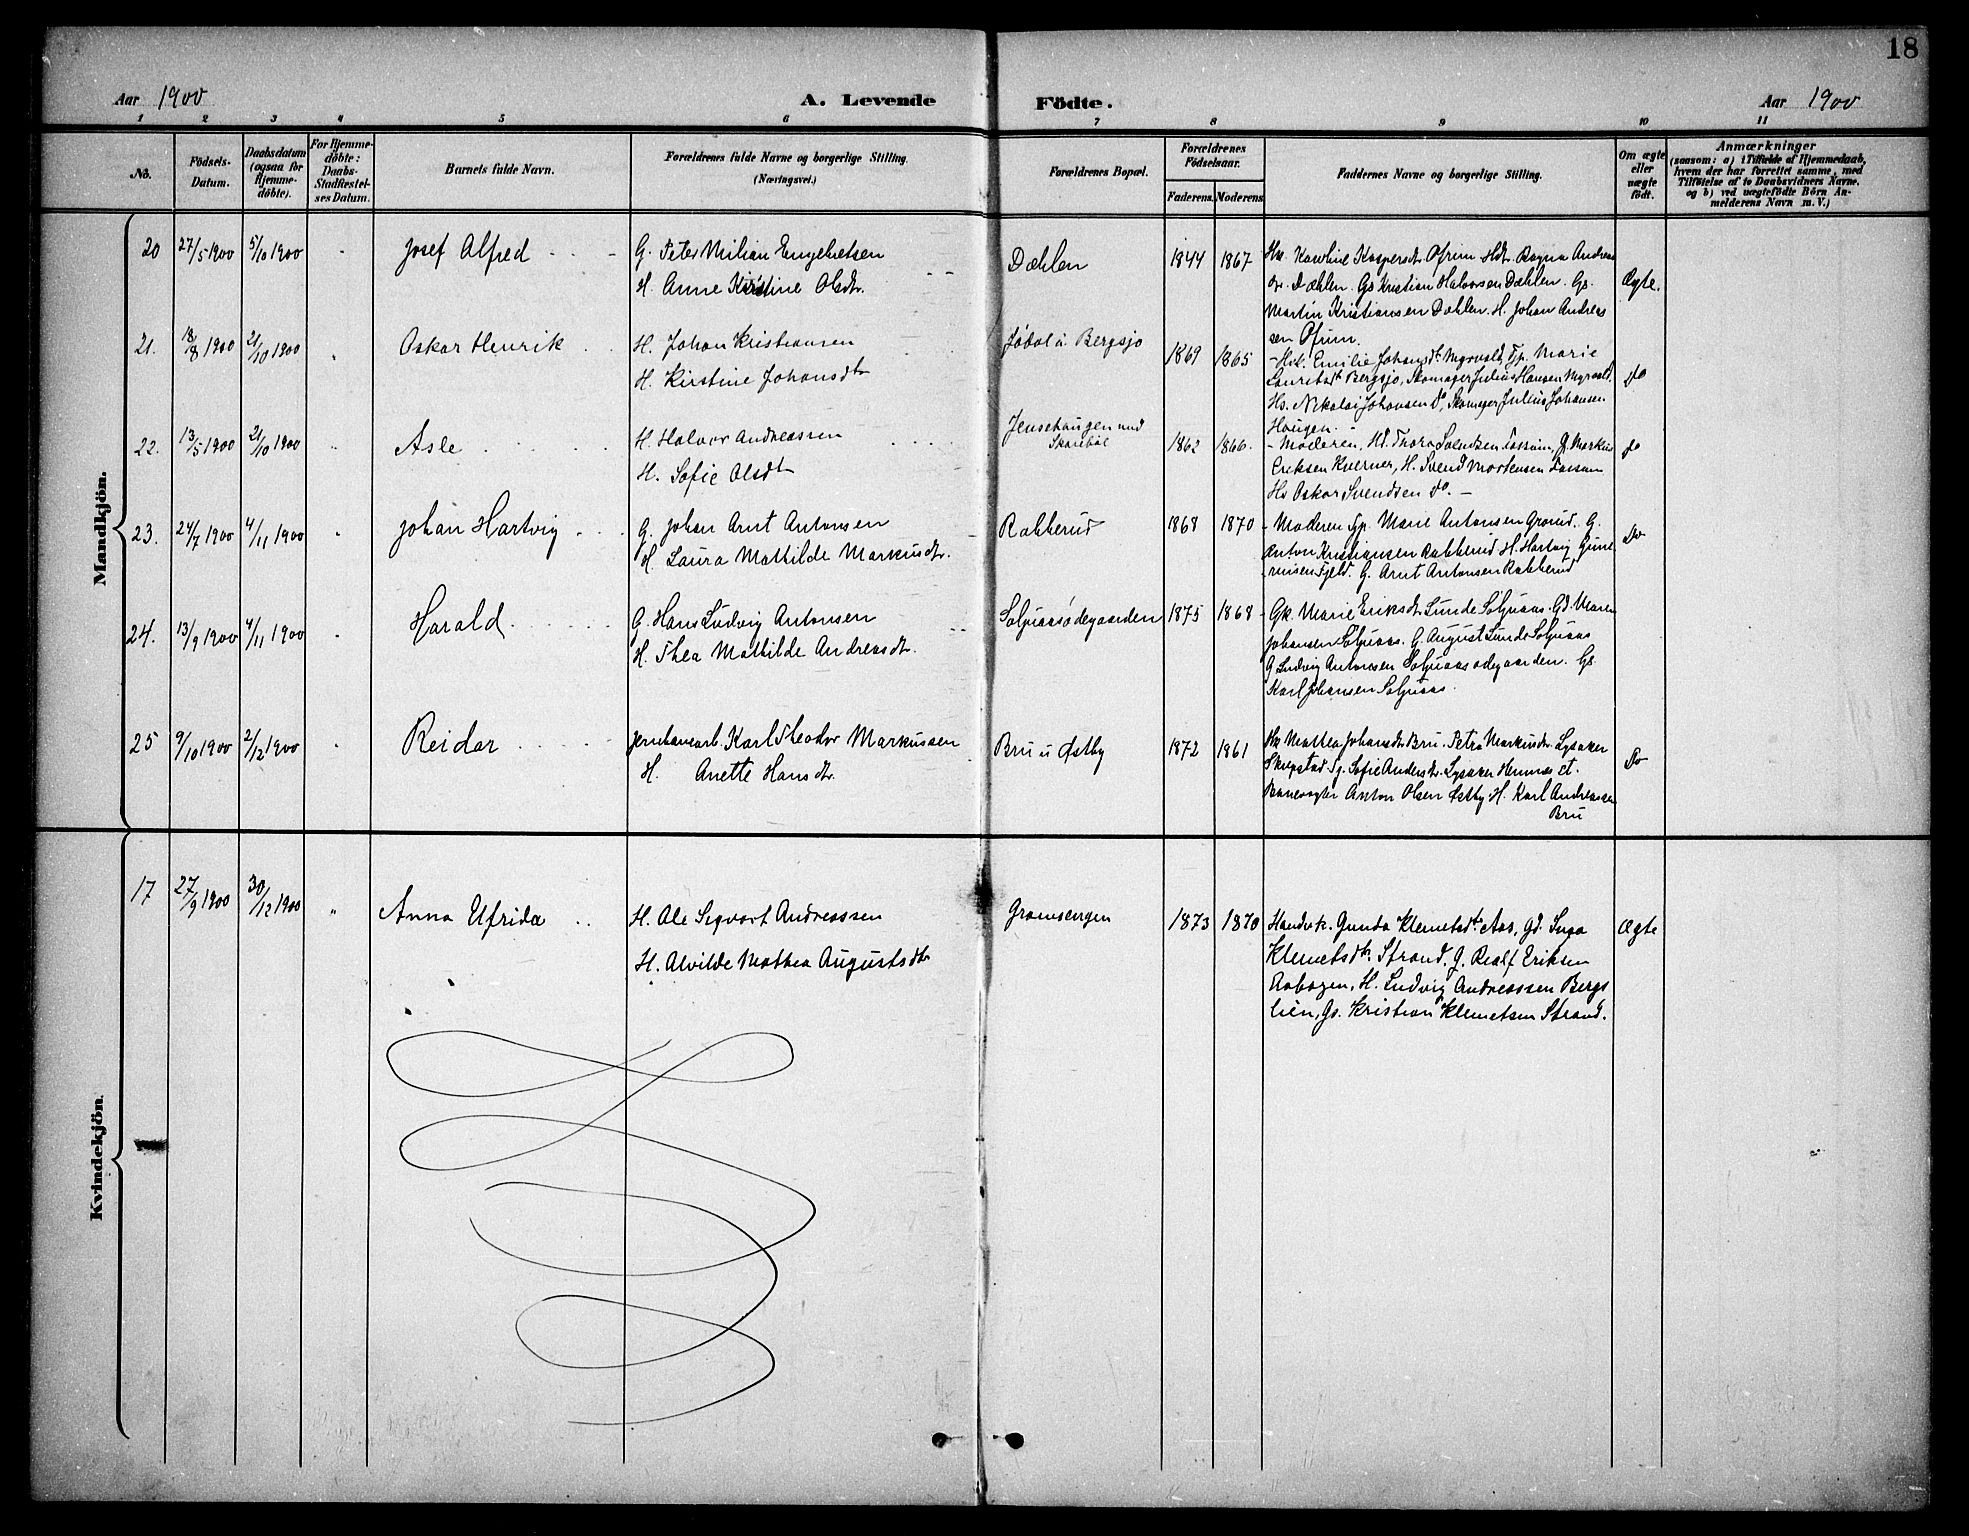 18
Aar 1900 A. Levende Födte. Aar 1900
1 2 3 4 5 6 7 8 9 10 11
No.
Födsels-
Datum.
Daabsdatum
(ogsaa for
Hjemme-
döbte).
For Hjemme-
döbte:
Daabs-
Stadfæstel-
ses Datum.
Barnets fulde Navn.
Forældrenes fulde Navne og borgerlige Stilling.
(Næringsvei.)
Forældrenes Bopæl.
Forældrenes
Födselsaar.
Faderens. Moderens
Faddernes Navne og borgerlige Stilling.
Om ægte
eller
uægte
födt.
Anmærkninger
(saasom: a) i Tilfælde af Hjemmedaab,
hvem der har forrettet samme, med
Tilföielse af to Daabsvidners Navne,
og b) ved uægtefödte Börn An-
melderens Navn m. V.)
Mandkjön.
20 27/5 1900 5/10 1900 Josef Alfred
G. Peter Milian Engebretsen
H. Anne Kirstine Olsdtr.
Dæhlen 1844 1867
Karoline Kaspersdtr. Ofrim Ragna Andreas
Dæhlen. Gs Kristian Halvorsen Dæhlen. Gs.
Martin Kristiansen Dæhlen. H. Johan Andreas
sen Ofrim.
Ægte.
21. 18/8 1900 21/10 1900 Oskar Henrik
H. Johan Kristiansen
H. Kirstine Johansdtr
Jøbol u. Bergsjø 1869 1865
Emilie Johansdtr. Myrvold, Tp. Marie
Lauritsdtr Bergsjø, Skomager Julius Hansen Myrvold.
Hs. Nikolai Johansen do, Skomager Julius Johansen
Haugen.
do
22. 13/5 1900 21/10 1900 Asle
H. Halvor Andreassen
H. Sofie Olsdtr
Jensehaugen und
Skarebøl
1862 1866.
- Moderen, Thora Svendsen Fossum, G. Markus
Eriksen Kverner, H. Svend Mortensen Fossum
Hs Oskar Svendsen do. -
do
23. 24/7 1900 4/11 1900 Johan Hartvig
G. Johan Arnt Antonsen
H. Laura Mathilde Markusdtr.
Rakkerud 1868 1870
- Moderen Gp. Marie Antonsen G. 
Anton Kristiansen Rakkerud H. Hartvig Gune
riusen Fjeld. G. Arnt Antonsen Rakkerud
Do
24. 13/9 1900 4/11 1900 Harald
G. Hans Ludvig Antonsen
H. Thea Mathilde Andreasdtr.
Solguasødegaarden 1875 1868
- Gk. Marie Eriksdtr. Lunde Solguaas. Gd. Maren
Johansen Solguaas. G. August Lunde Solguaas
G Ludvig Antonsen Solguaasødegaarden. Gs.
Karl Johansen Solguaas.
25 9/10 1900 2/12 1900 Reidar
Jernbanearb. Karl Theodor Markussen
H. Anette Hansdtr.
Bru u Østby 1872 1861
Mathea Johansdtr Bru. Petra Markusdtr. Lysaker
Sofie Andersdtr. Lysaker Hemnæs et.
Banevogter Anton Olsen Østby H. Karl Andreassen
Bru
Do
Kvindekjön.
17 27/9 1900 30/12 1900 Anna Elfrida
H. Ale Sigvart Andreassen
H. Alvilde Mathea Augustsdtr
Gramsengen 1873 1870
Gunda Klemetsdtr. Aas, Gd. Inga
Klemetsdtr. Strand, G. Realf Eriksen
H. Ludvig Andreassen Bergs
lien, Gs. Kristian Klemetsen Strand.
Ægte